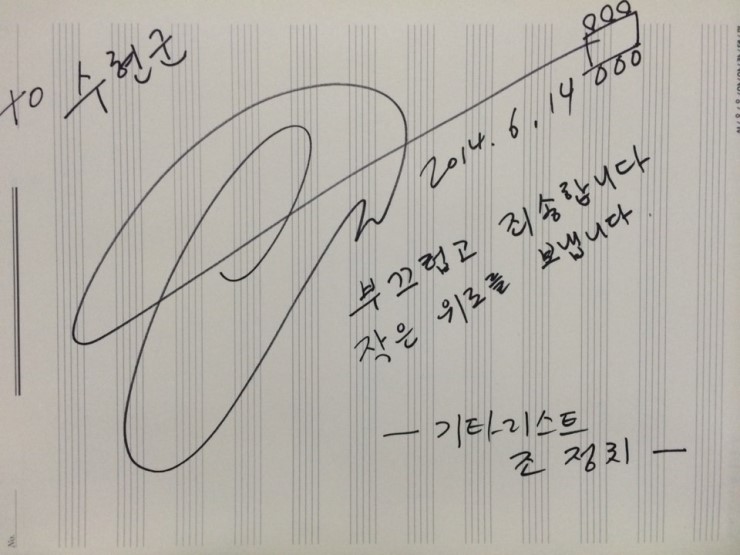 to 수현군
2014. 6. 14
부끄럽고 죄송합니다
작은 위로를 보냅니다.
— 기타리스트
조 정치 —
No.